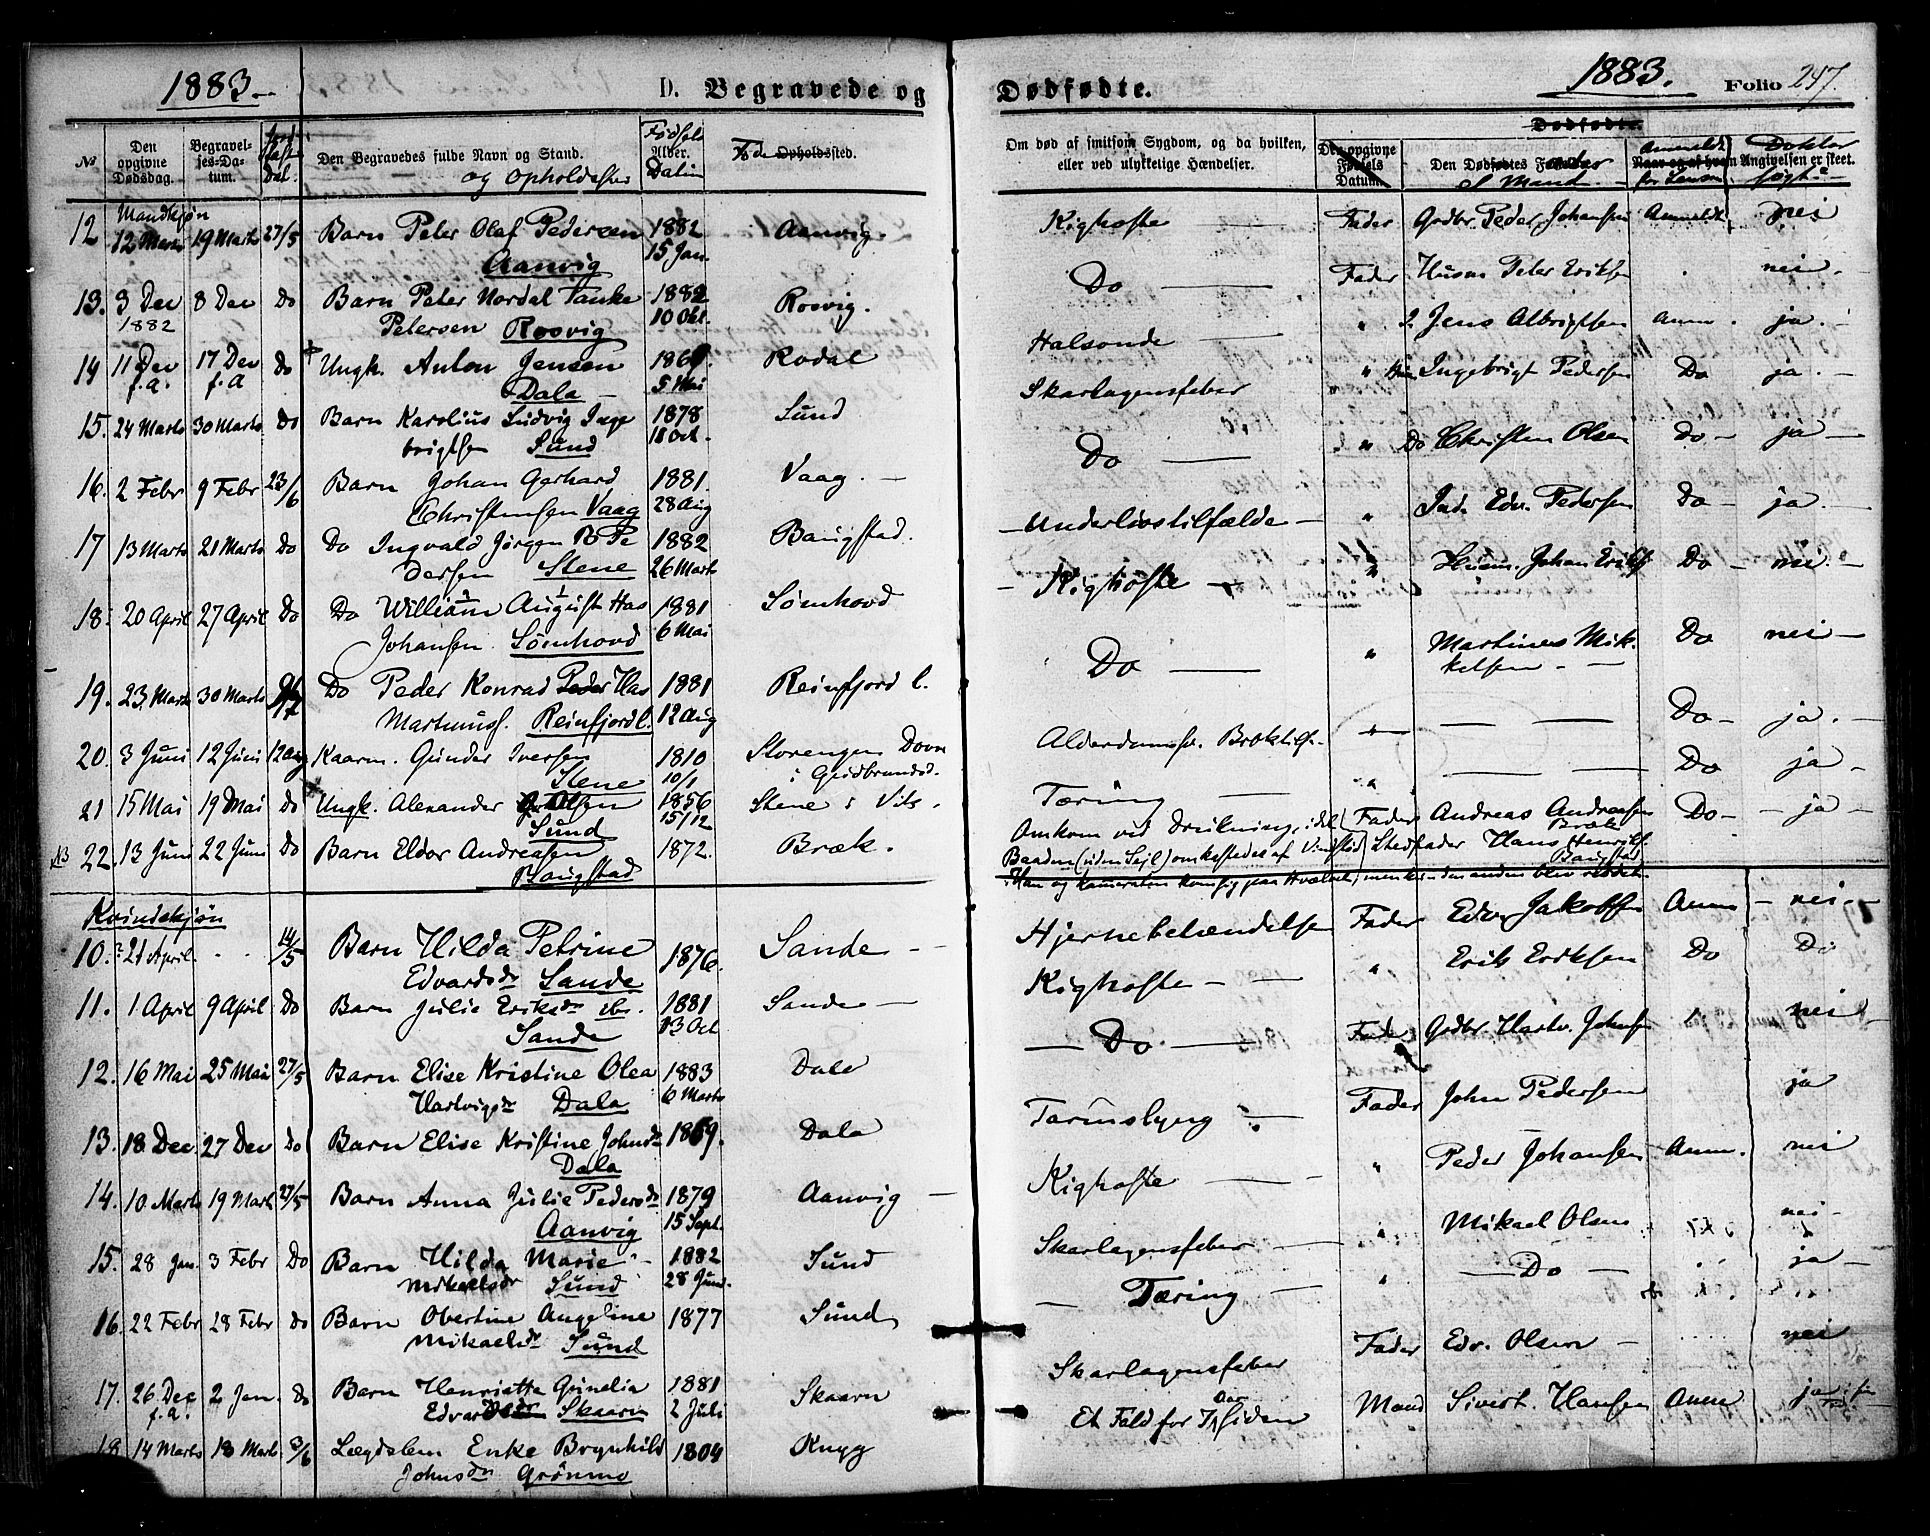 1883.
D. Begravede og
No
Den opgivne Dødsdag.
Begravel-jes-Da-tum.
Den Begravedes fulde Navn og Stand.
og Opholdssted
Fødsels
Alder.
Datum
Føde Opholdssted.
Mandkjøn
12 12 Marts 19 Marts 27/5 Barn Peter Olaf Pedersen 1882 Aanvig.
Aanvig 15 Jan.
13. 3 Dec 8 Dec Do Barn Peter Nordal Tanke 1882 Rosvig.
1882 Petersen Rosvig 10 Okt.
14 11 Dec 17 Dec Do Ungk. Anton Jensen Rodal
f.a. f.a Dala 5 Mai
15. 24 Marts 30 Marts Do Barn Karolius Ludvig Inge 1878 Sund
brigtsen Sund 18 Oct.
16. 2 Febr 9 Febr 23/6 Barn Johan Gerhard 1881. Vaag.
Christensen Vaag 28 Aug
17 13 Marts 21 Marts Do Do Ingvald Jørgen Pe 1882 Bangstad.
dersen Stene 26 Marts
18. 20 April 27 April Do Do William August Has 1881 Sømhovd
Johansen. Sømhovd 6 Mai
19. 23 Marts 30 Marts Do Peder Konrad Peder Has 1881 Reinfjord l.
Martinuss. Reinfjord l. 12 Aug
20. 3 Juni 12 Juni 12 Aug Kaarm. Gunder Iversen 1810 Storengen Dovre
Stene 10/1 i Gudbrandsd.
21 15 Mai 19 Mai Do Ungk. Alexander Olsen 1856 Stene i Vik.
Sund 15/12
NB 22. 13 Juni 22 Juni Do Barn Eldor Andreasen 1872. Bræk.
Bangstad
Kvindekjøn
10. 21 April. 14/5 Barn Hilda Petrine 1876. Sande
Edvardsdr Sande
11. 1 April 9 April Do Barn Julie Eriksdr ibr. 1881 Sande
Sande 13 Oct
12. 16 Mai 25 Mai 27/5 Barn Elise Kristine Olea 1883 Dale
Hartvigsdr Dala 6 Marts
13. 18 Dec 27 Dec Do Barn Elise Kristine Johnsdr 1869. Dala
Dala
14. 10 Marts 19 Marts 27/5 Barn Anna Julie Pedersdr 1879 Aanvig
Aanvig 15 Sept.
15. 28 Jan. 3 Febr Do Barn Hilda Marie 1882 Sund
Mikaelsdr Sund 28 Juni.
16. 22 Febr 28 Febr Do Barn Obertine Angeline 1877 Sund
Mikaelsdr Sund
17. 26 Dec 2 Jan. Do Barn Henriette Gunelia 1881 Skaarn
f.a. Edvardsdr Skaarn 2 Juli
18 14 Marts 18 Marts 3/6 Lægdslem Enke Brynhild 1804 Knyg
Johnsdr Grønmo
Dødfødte.
1883.
Folio 247.
Dødfødte.
Om død af smitsom Sygdom, og da hvilken,
eller ved ulykkelige Hændelser.
Den opgivne Fødsels Datum.
Den Dødfødtes Fader
s Mand
Anmeldt
Naar og af hvem
for Lensm
Doktor
Angivelsen er skeet.
søgt
Kighoste Fader Grdbr Peder Johansen Anmeldt nei
Do Fader Husm Peter Eriksen nei.
Halsonde " Jens Albrigtsen Anm. ja.
Skarlagensfeber " Ingebrigt Pedersen Do ja.
Do " Do Christen Olsen Do ja
Underlivstilfælde " Ind. Edv. Pedersen Do ja
Kighoste " Husm. Johan Eriks Do nei
Do " Martinus Mik- Do nei
kelsen
Alderdomssv. Broktilf. Do ja.
Tæring " Do ja
Omkom ved Drukning, idet Fader Andreas Andreasen Do ja
Bræk
Baaden (uden Sejl) omkastedes af Vindstød Stedfader Hans Henrik.
Bangstad
Han og Kameraten kom sig paa Hvælvet, men kun den anden blev reddet.
Hjernebetændelse Fader Edv Jakobsen Anm nei
Kighoste " Erik Eriksen Do Do
Do Fader Grdbr Hartv. Johnsen " nei
Tarmslyng Fader John Pedersen ja
Kighoste " Peder Johansen Anm. nei
Skarlagensfeber " Mikael Olsen nei
Tæring " Do ja
Skarlagensfeber Fader Edv. Olsen nei
Et Fald for Aar Siden Mand Sivert Hansen Anm ja